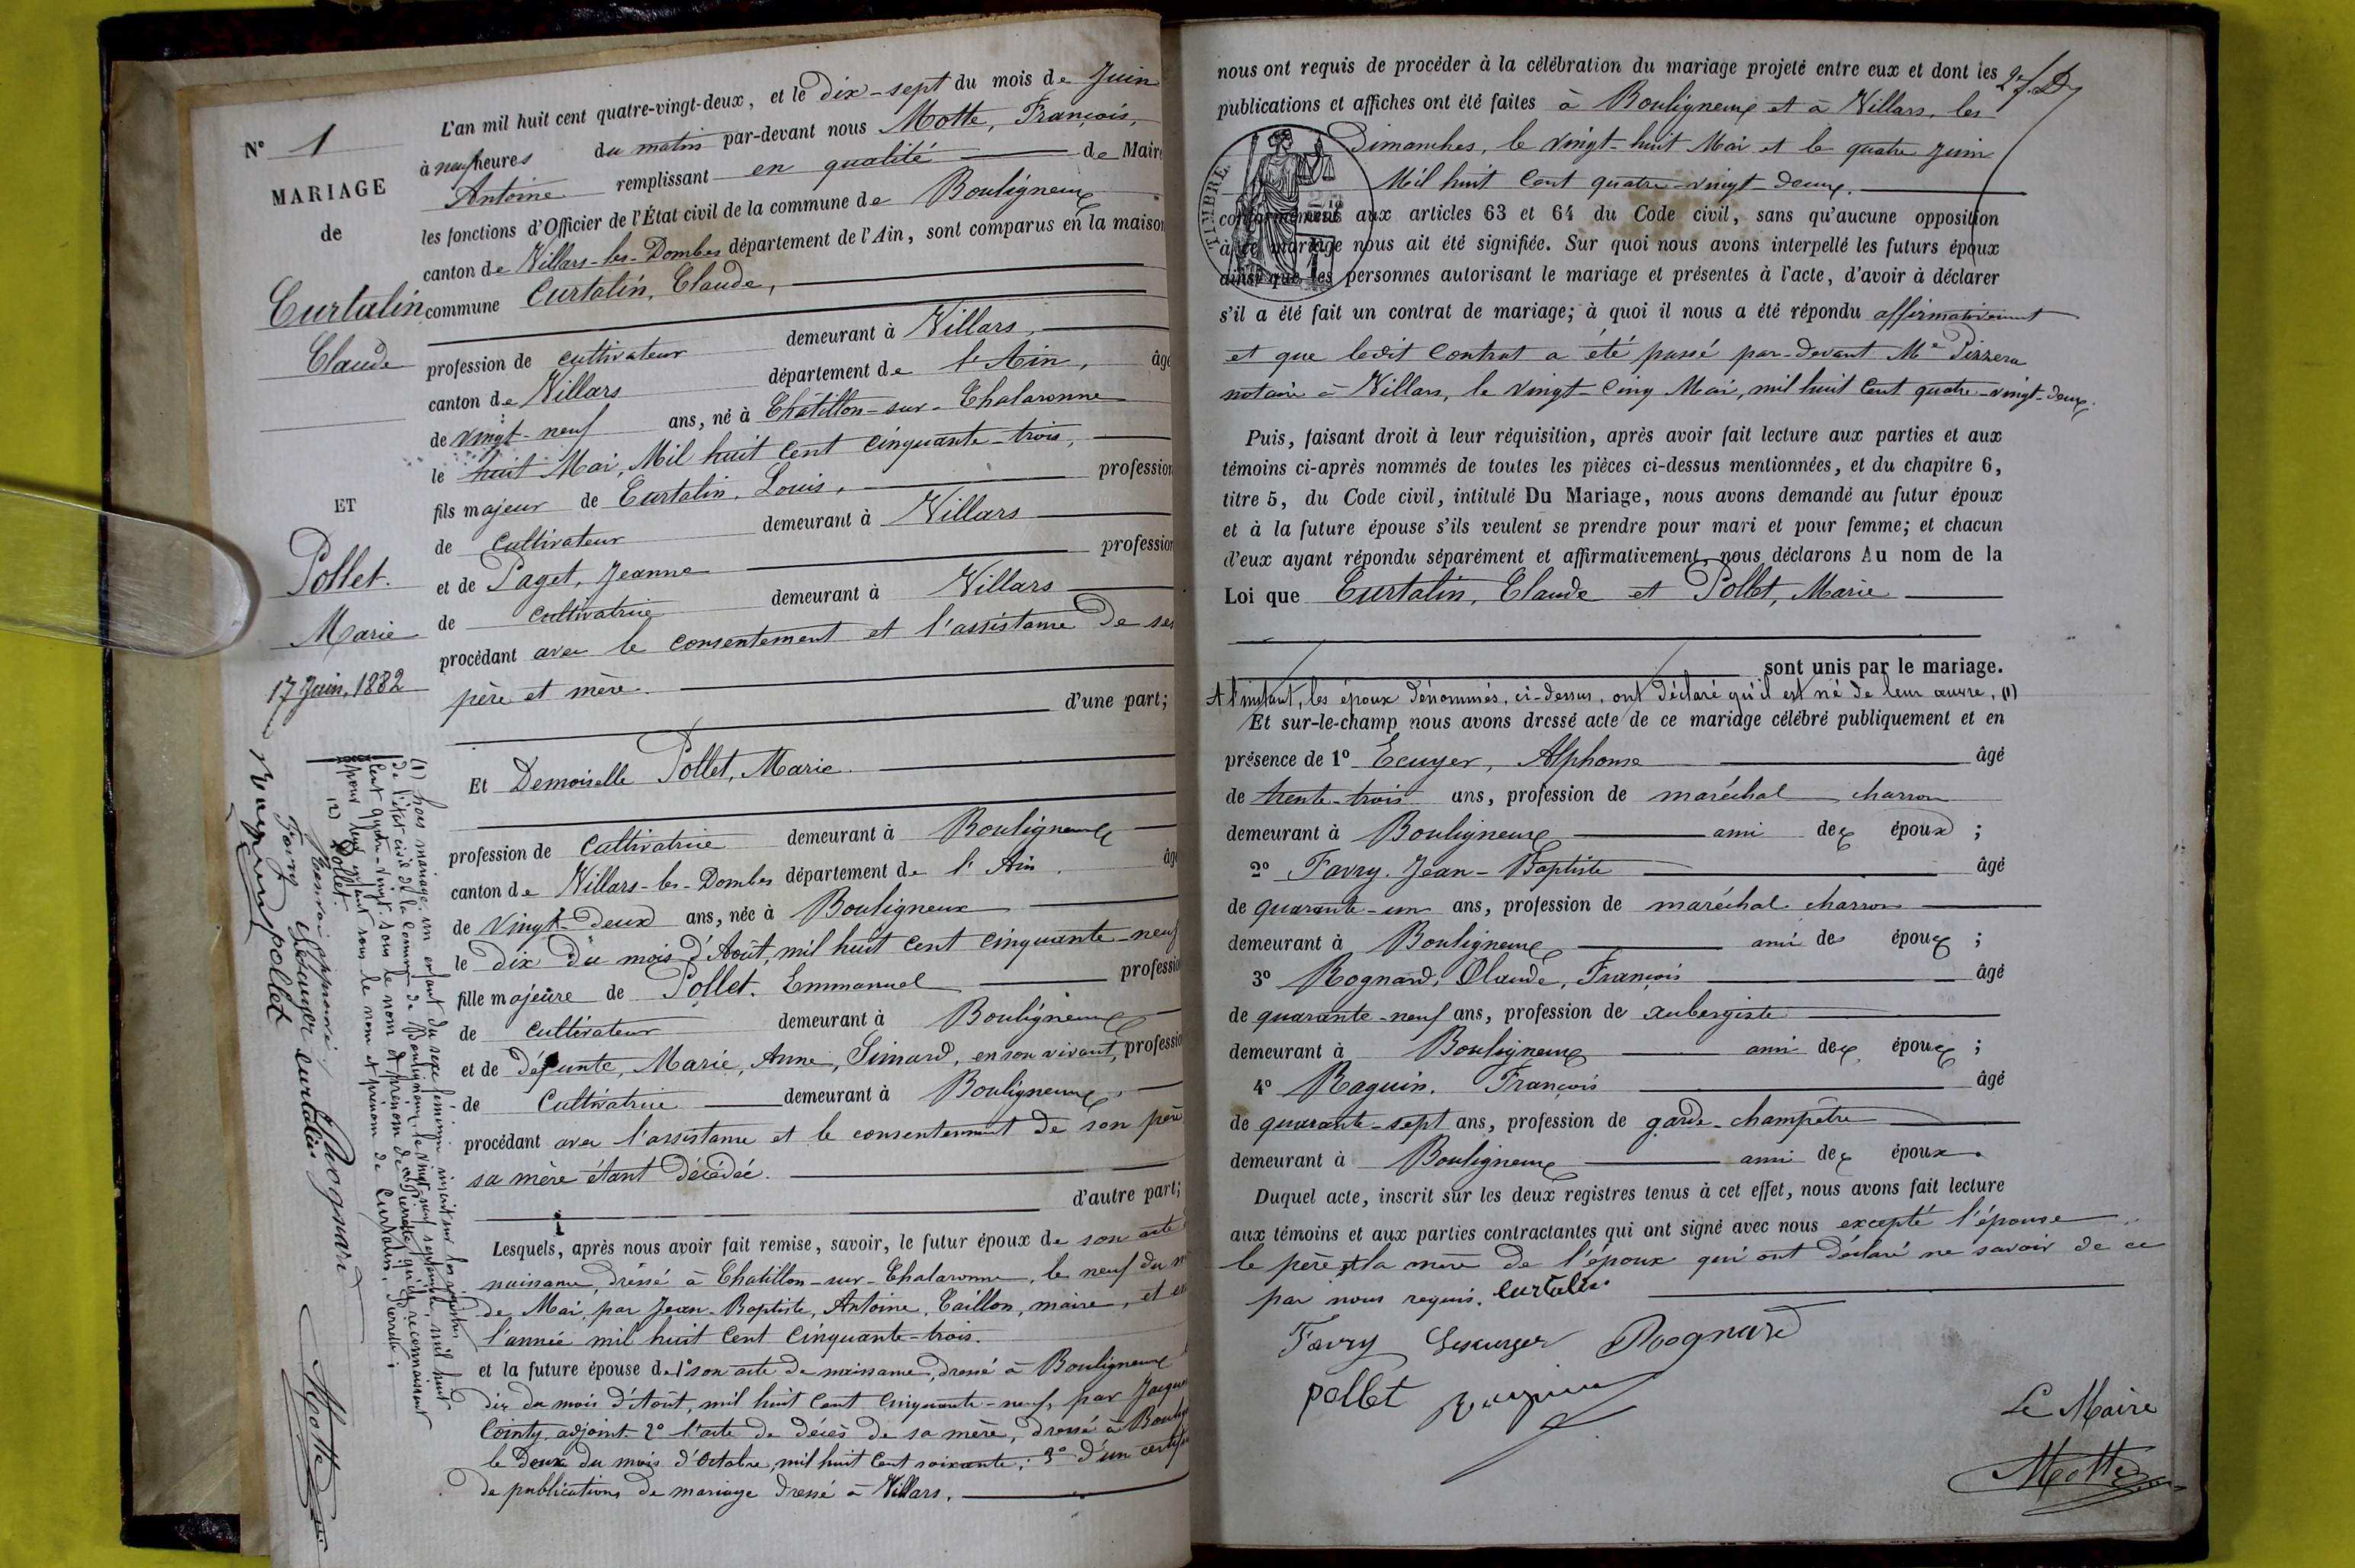 N° 1
MARIAGE
de
Curtalin
Claude
ET
Pollet.
Marie
17 Juin, 1882
L'an mil huit cent quatre-vingt-deux, et le dix-sept du mois de Juin
à neuf heures du matin par-devant nous Motte, François,
Antoine remplissant en qualité de Maire
les fonctions d'Officier de l'État civil de la commune de Bouligneux
canton de Villars-les-Dombes département de l'Ain, sont comparus en la maison
commune Curtalin, Claude,
profession de cultivateur demeurant à Villars,
canton de Villars département de l'Ain, âgé
de vingt-neuf ans, né à Châtillon-sur-Chalaronne
le huit Mai, Mil huit cent cinquante-trois,
fils majeur de Curtalin, Louis, profession
de Cultivateur demeurant à Villars
et de Paget, Jeanne profession
de cultivatrice demeurant à Villars
procédant avec le consentement et l'assistance de ses
père et mère.
d'une part;
Et Demoiselle Pollet, Marie.
profession de Cultivatrice demeurant à Bouligneux
canton de Villars-les-Dombes département de l'Ain, âgé
de Vingt-deux ans, née à Bouligneux
le dix du mois d'Août, mil huit cent cinquante-neuf
fille majeure de Pollet. Emmanuel profession
de cultivateur demeurant à Bouligneux
et de défunte, Marie, Anne, Simard, en son vivant, profession
de Cultivatrice demeurant à Bouligneux,
procédant avec l'assistance et le consentement de son père
sa mère étant décédée.
d'autre part;
Lesquels, après nous avoir fait remise, savoir, le futur époux de son acte
naissance, dressé à Chatillon-sur-Chalaronne, le neuf du
de Mai, par Jean-Baptiste, Antoine, Caillon, maire, et
l'année mil huit cent cinquante-trois.
et la future épouse de 1° son acte de naissance, dressé à Bouligneux
dix du mois d'Août, mil huit cent cinquante-neuf, par Jacques
Cointy, adjoint 2° l'acte de décès de sa mère, dressé à Boulig
le deux du mois d'Octobre, mil huit cent soixante; 3° d'un certif
de publications de mariage dressé à Villars.
(1) hors mariage, un enfant du sexe féminin inscrit sur les registres
de l'état civil de la Commune de Bouligneux, le vingt-neuf septembre, mil huit
cent quatre-vingt, sous le nom et prénom de Pierrette, qu'ils reconnaissent
pour leur enfant sous le nom et prénom de Curtalin, Pierrette;
(2) Pollet.
Renvoi approuvé.
Favry Lecuyer curtalin Rognard
Raquin pollet Motte
nous ont requis de procéder à la célébration du mariage projeté entre eux et dont les
publications et affiches ont été faites à Bouligneux et à Villars, les
Dimanches, le vingt-huit Mai et le quatre Juin
Mil huit cent quatre-vingt-deux.
TIMBRE
conformément aux articles 63 et 64 du Code civil, sans qu'aucune opposition
à ce mariage nous ait été signifiée. Sur quoi nous avons interpellé les futurs époux
ainsi que les personnes autorisant le mariage et présentes à l'acte, d'avoir à déclarer
s'il a été fait un contrat de mariage; à quoi il nous a été répondu affirmativement
et que ledit Contrat a été passé par-devant Me Pizzera
notaire à Villars, le vingt-cinq Mai, mil huit cent quatre-vingt-deux.
Puis, faisant droit à leur réquisition, après avoir fait lecture aux parties et aux
témoins ci-après nommés de toutes les pièces ci-dessus mentionnées, et du chapitre 6,
titre 5, du Code civil, intitulé Du Mariage, nous avons demandé au futur époux
et à la future épouse s'ils veulent se prendre pour mari et pour femme; et chacun
d'eux ayant répondu séparément et affirmativement, nous déclarons Au nom de la
Loi que Curtalin, Claude et Pollet, Marie
sont unis par le mariage.
A l'instant, les époux dénommés, ci-dessus, ont déclaré qu'il est né de leur œuvre, (1)
Et sur-le-champ nous avons dressé acte de ce mariage célébré publiquement et en
présence de 1° Ecuyer, Alphonse âgé
de trente-trois ans, profession de maréchal charron
demeurant à Bouligneux ami des époux;
2° Favry. Jean-Baptiste âgé
de quarante-un ans, profession de maréchal charron
demeurant à Bouligneux ami des époux;
3° Rognard, Claude, François âgé
de quarante-neuf ans, profession de aubergiste
demeurant à Bouligneux ami des époux;
4° Raquin. François âgé
de quarante-sept ans, profession de garde-champêtre
demeurant à Bouligneux ami des époux.
Duquel acte, inscrit sur les deux registres tenus à cet effet, nous avons fait lecture
aux témoins et aux parties contractantes qui ont signé avec nous excepté l'épouse
le père et la mère de l'époux qui ont déclaré ne savoir de ce
par nous requis. Curtalin
Favry Lecuyer Rognard
pollet Raquin
Le Maire
Motte